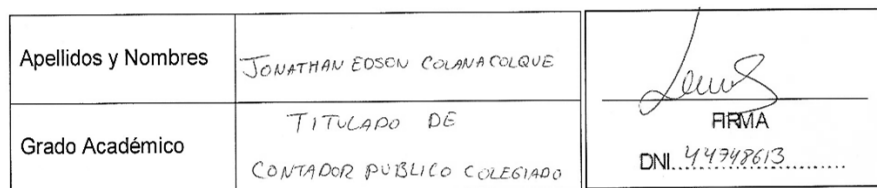 Apellidos y Nombres
JONATHAN EDSON COLANA COLQUE
Grado Académico
TITULADO DE
CONTADOR PUBLICO COLEGIADO
FIRMA
DNI. 44748613